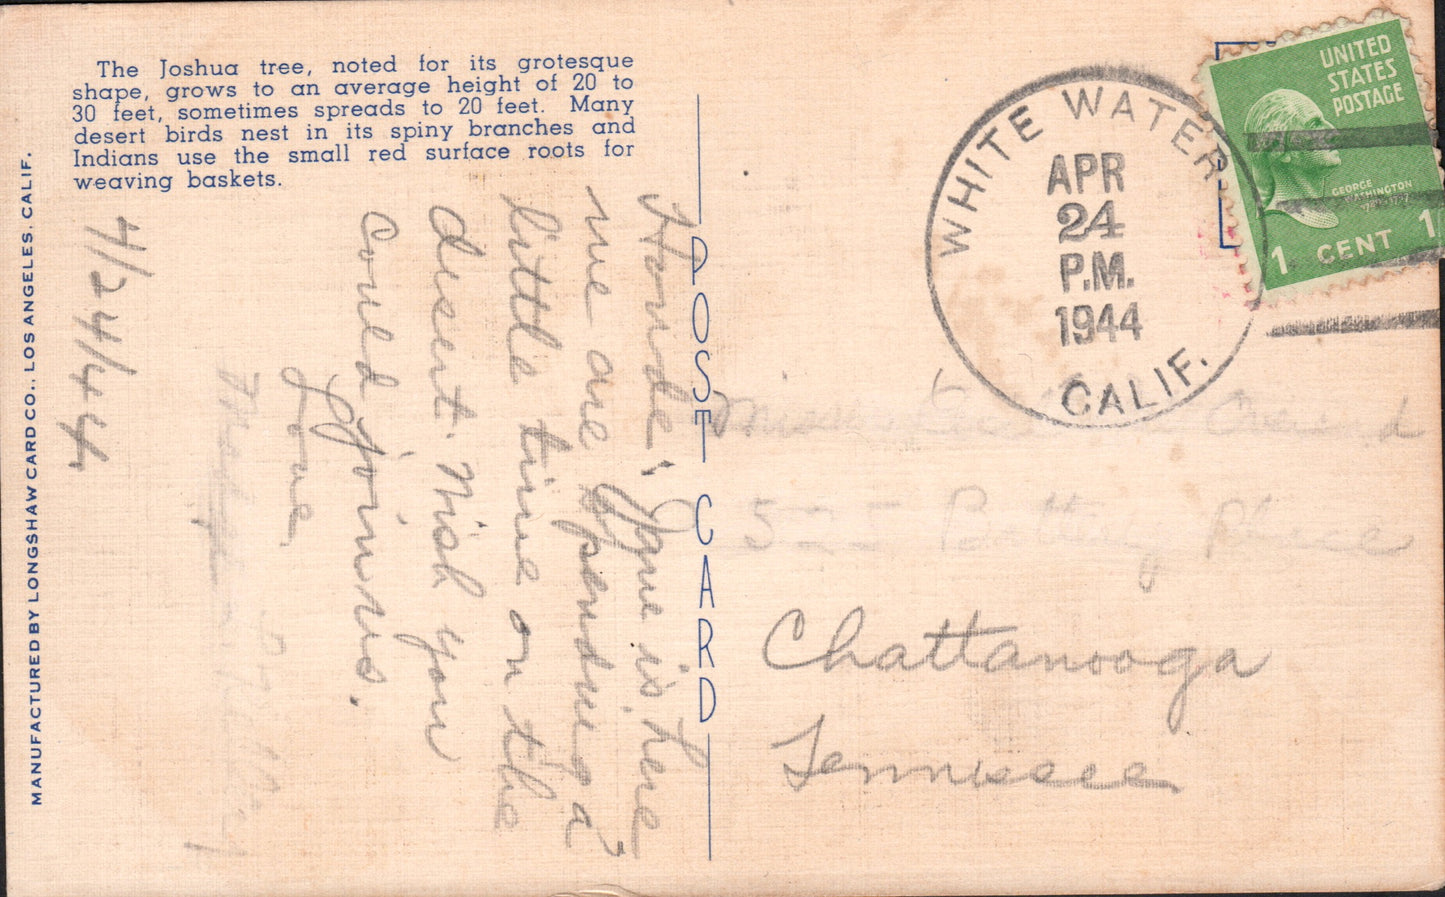 The Joshua tree, noted for its grotesque
shape, grows to an average height of 20 to
30 feet, sometimes spreads to 20 feet. Many
desert birds nest in its spiny branches and
Indians use the small red surface roots for
weaving baskets.
MANUFACTURED BY LONGSHAW CARD CO., LOS ANGELES, CALIF.
4/24/44
is here
me are spending a
little time on the
desert. Wish you
could join us.
Love,
POST CARD
WHITE WATER
APR
24
P.M.
1944
CALIF.
UNITED
STATES
POSTAGE
GEORGE
WASHINGTON
1 CENT 1
Overend
Battery Place
Chattanooga
Tennessee